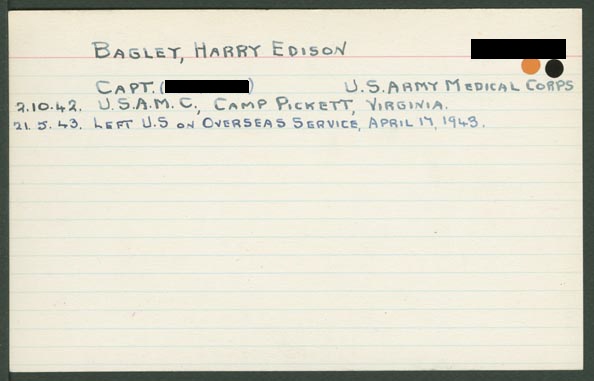 BAGLEY, HARRY EDISON
CAPT. ( ) U.S. ARMY MEDICAL CORPS
2.10.42. U.S.A.M.C., CAMP PICKETT, VIRGINIA.
21.5.43. LEFT U.S ON OVERSEAS SERVICE, APRIL 17, 1943.